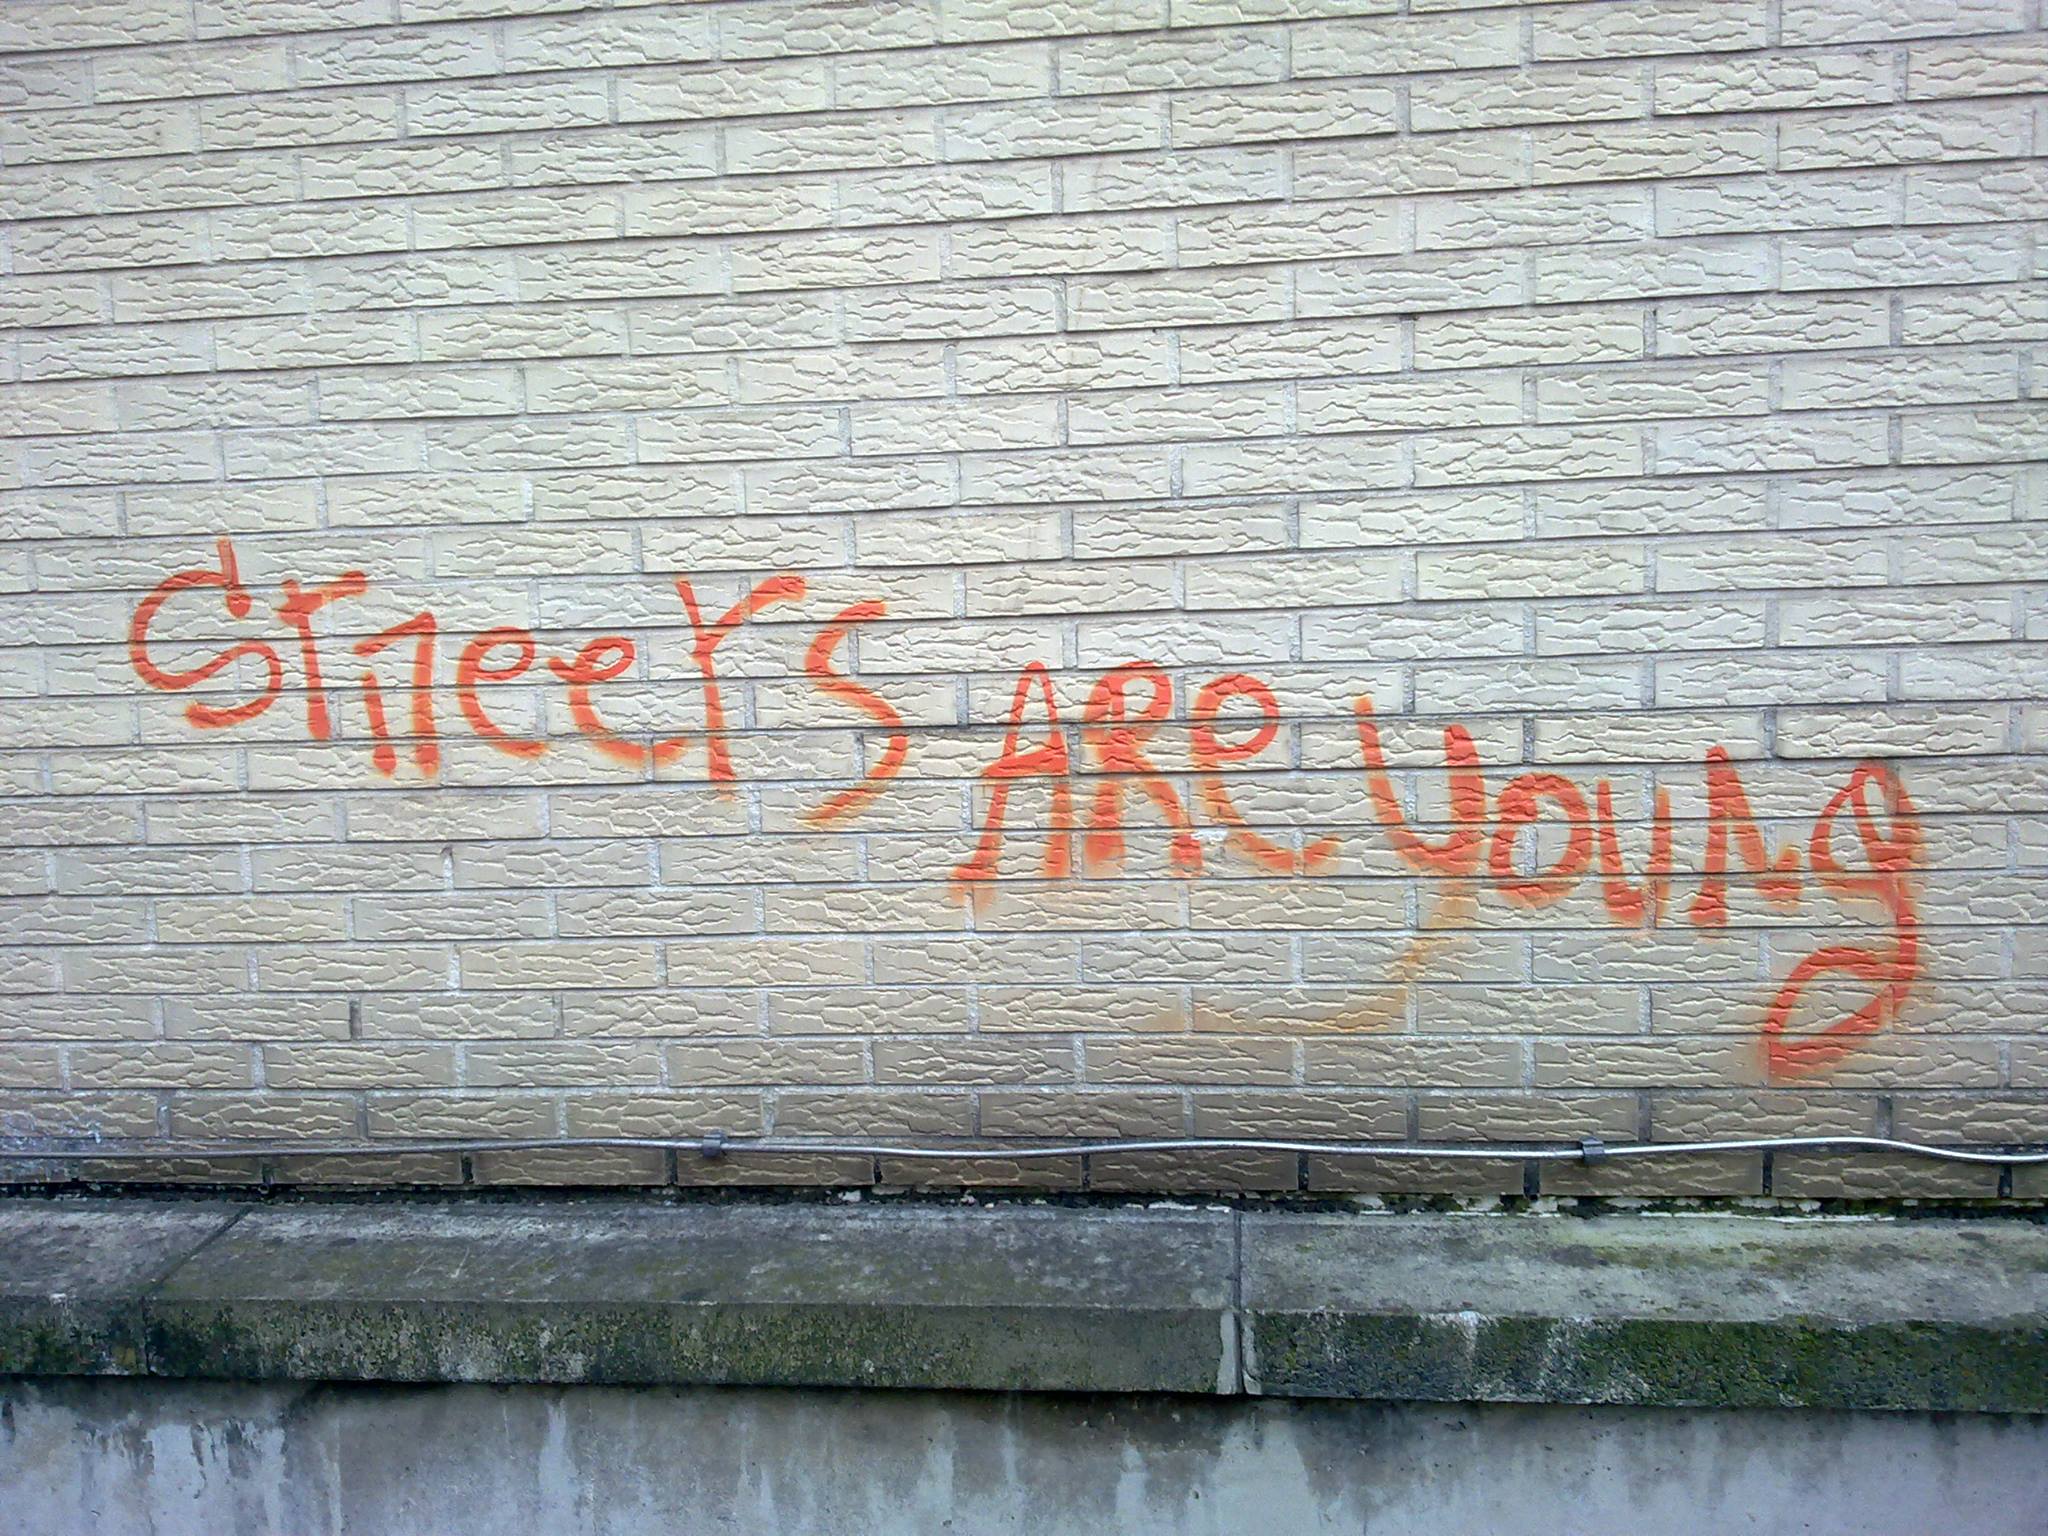 Streets ARe young